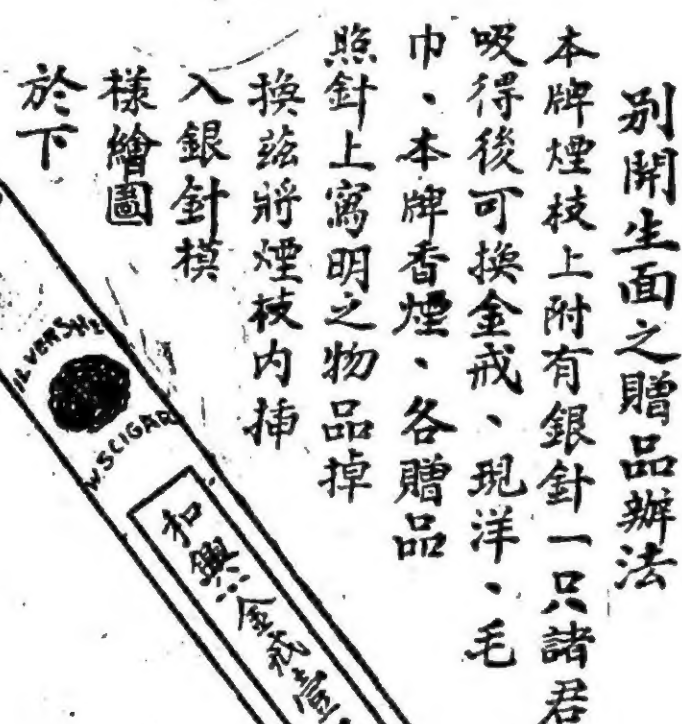 别開生面之贈品辦法
本牌煙枝上附有銀針一只諸君
吸得後可換金戒、現洋、毛
巾、本牌香煙、各贈品
照針上寫明之物品掉
換茲將煙枝内揷
入銀針模
樣繪圖
於下
ILVERSH
W.S CIGAR
和興
金戒壹